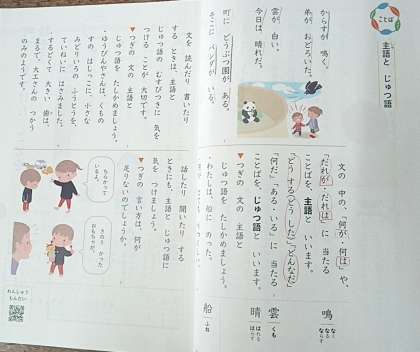 ことば
主語と じゅつ語
からすが 鳴く。
弟が おどろいた。
今日は 晴れだ。
雲が 白い。
町に どうぶつ園が ある。
そこに パンダが いる。
文の 中の、「何が・何は」や、
「だれが・だれは」に 当たる
ことばを、主語と いいます。
「どう する・どう した」「どんなだ」
「何だ」「ある・いる」に 当たる
ことばを、じゅつ語と いいます。
▼つぎの 文の 主語と
じゅつ語を たしかめましょう。
わたしは、船に のった。
鳴 なく なる ならす
雲 くも
晴 はれる はらす
船 ふね
文を 読んだり 書いたり
する ときは、主語と
じゅつ語の むすびつきに 気を
つける ことが 大切です。
▼つぎの 文の 主語と
じゅつ語を たしかめましょう。
・ゆうびんやさんは、くもの
すの はしっこに、小さな
みどりいろの ふうとうを、
ていねいに はさみました。
・するどくて 大きい 歯は、
まるで、大工さんの つかう
のみのようです。
話したり 聞いたり する
ときにも、主語と じゅつ語に
気を つけましょう。
▼つぎの 言い方は、何が
足りないのでしょうか。
ちらかって いるよ。
きのう かった おもちゃが。
れんしゅう もんだい